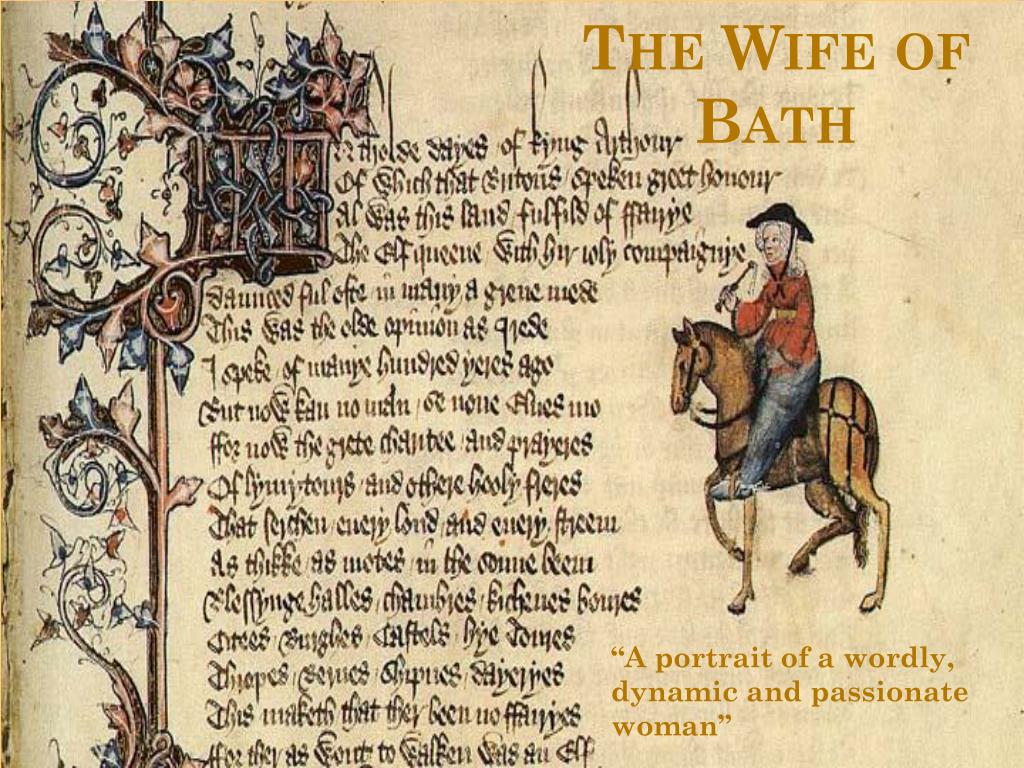 THE WIFE OF
BATH
In tholde dayes of kyng Arthour
Of which that Britons speken greet honour
Al was this land fulfild of ffairye
The Elf queene with hir ioly compaignye
Daunced ful ofte in many a grene mede
This was the olde opinion as I rede
I speke of manye hundred yeres ago
But now kan no man se none Elues mo
ffor now the grete charitee and prayeres
Of lymytours and othere hooly freres
That serchen euery lond and euery streem
As thikke as motes in the sonne beem
Blessynge halles chambres kichenes boures
Citees Burghes Castels hye Toures
Thropes Bernes Shipnes dayeryes
This maketh that ther been no ffairyes
ffor ther as wont to walken was an Elf
“A portrait of a wordly,
dynamic and passionate
woman”